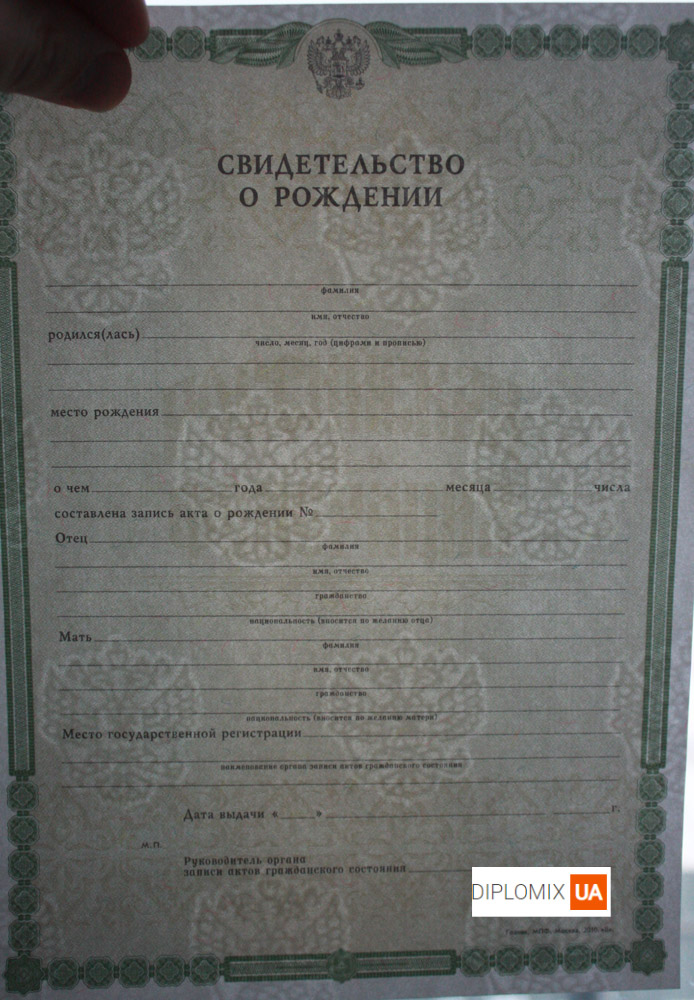 СВИДЕТЕЛЬСТВО
О РОЖДЕНИИ
фамилия
имя, отчество
родился(лась)
число, месяц, год (цифрами и прописью)
место рождения
о чем года месяца числа
составлена запись акта о рождении №
Отец
фамилия
имя, отчество
гражданство
национальность (вносится по желанию отца)
Мать
фамилия
имя, отчество
гражданство
национальность (вносится по желанию матери)
Место государственной регистрации
наименование органа записи актов гражданского состояния
Дата выдачи « » г.
М.П.
Руководитель органа
записи актов гражданского состояния
DIPLOMIX UA
Москва